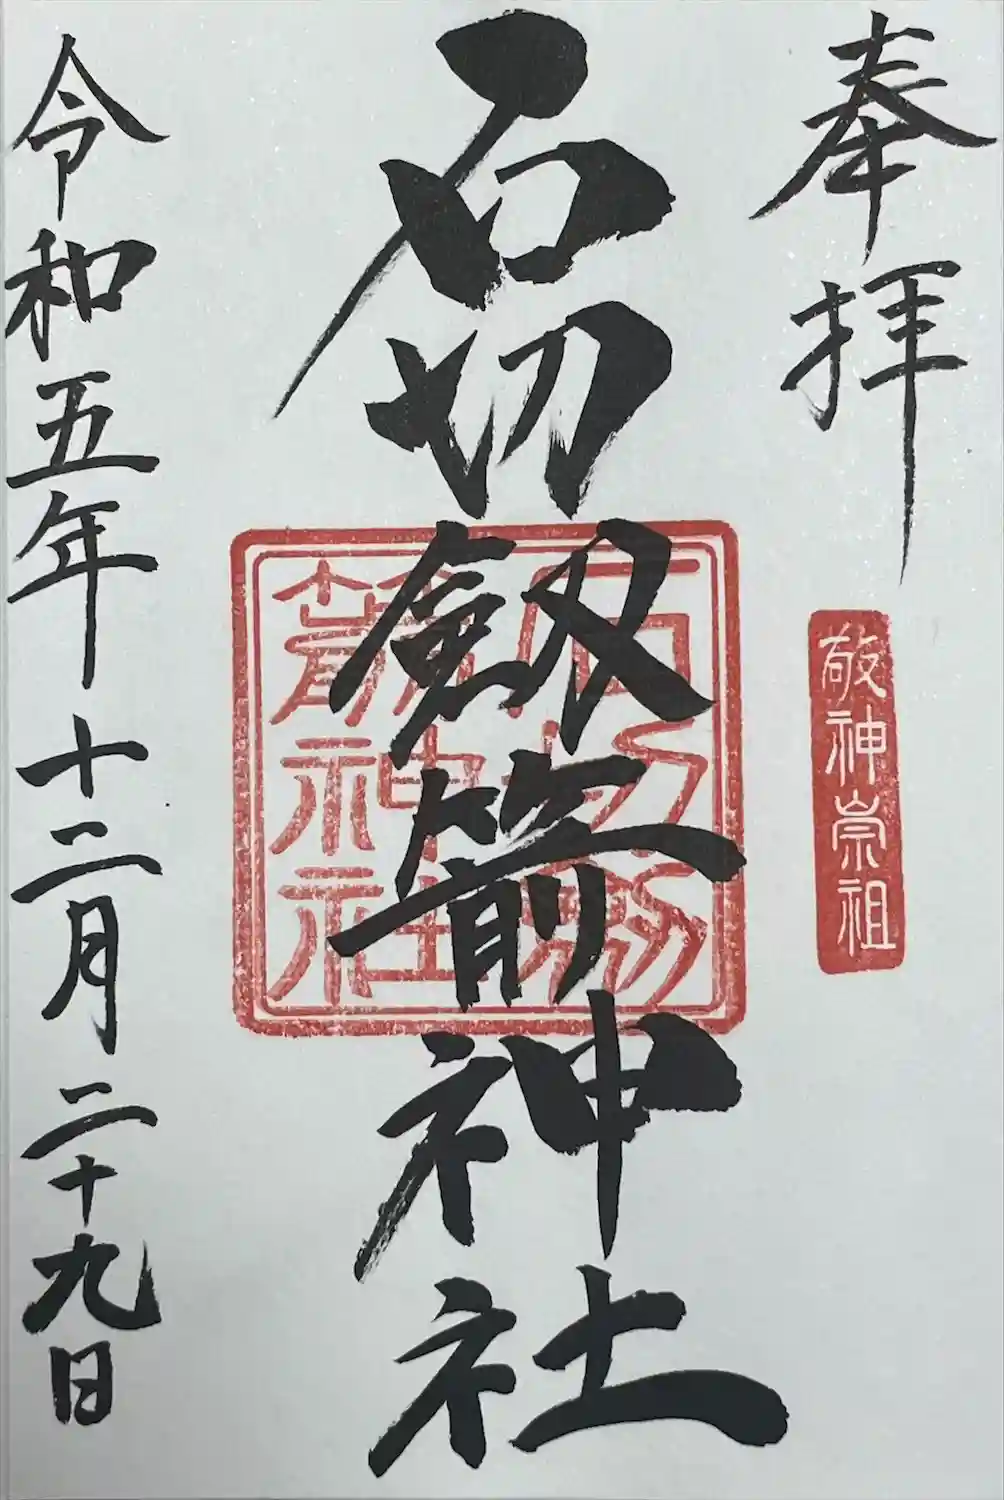 奉拝
敬神崇祖
石切劔箭神社
石切劔
箭神社
令和五年十二月二十九日